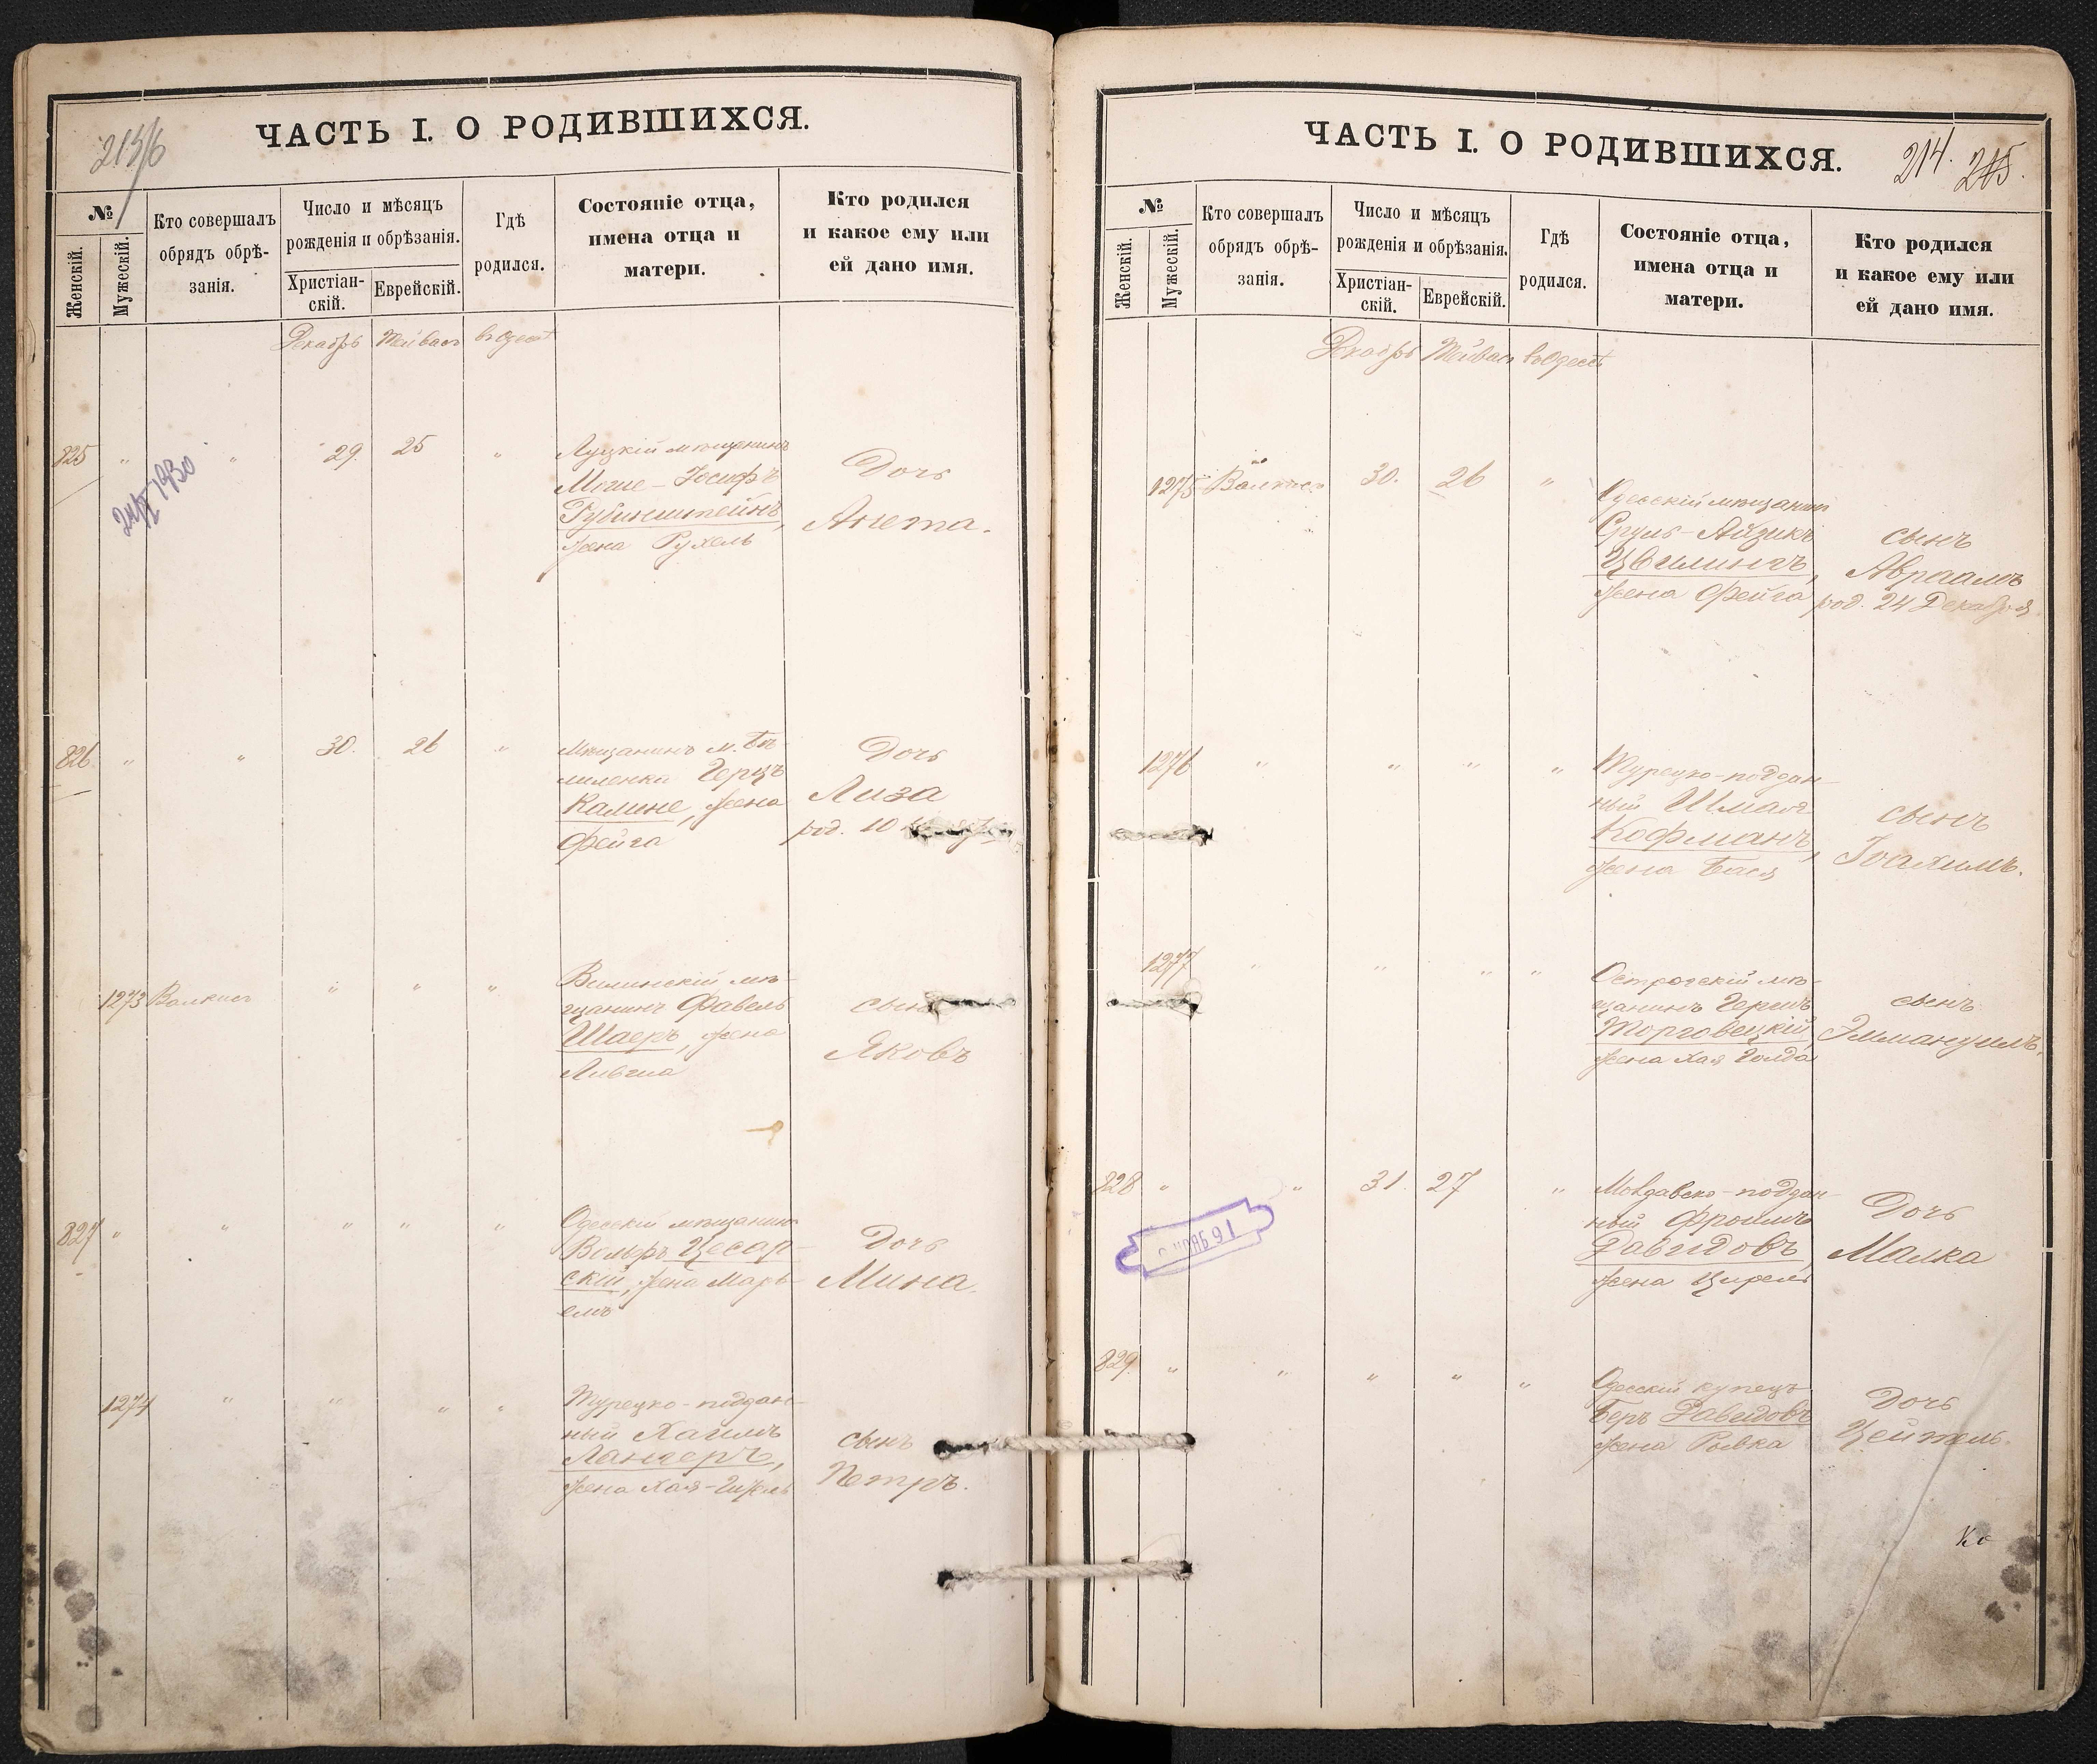 ЧАСТЬ I. О РОДИВШИХСЯ.
№
Женскій.
Мужескій.
Кто совершалъ
обрядъ обрѣ-
занія.
Число и мѣсяцъ
рожденія и обрѣзанія.
Христіан-
скій.
Еврейскій.
Гдѣ
родился.
Состояніе отца,
имена отца и
матери.
Кто родился
и какое ему или
ей дано имя.
Декабрь Тейвасъ въ Одессѣ
825 " " 29. 25 "
Луцкій мѣщанинъ
Мошe-Іосифъ
Рубинштейнъ,
жена Рухель
Дочь
Анета.
1930
826 " " 30. 26 "
Мѣщанинъ м. Бѣ-
миленка Герцъ
Калине, жена
Фейга
Дочь
Лиза
род. 10
1273 Валкисъ " " "
Виминскій мѣ-
щанинъ Фавель
Шаеръ, жена
сынъ
Яковъ
827 " " " " "
Одесскій мѣщанинъ
Вольфъ Цесар-
скій, жена Марь-
емъ
Дочь
Мина.
1274 " " " "
Турецко-поддан-
ный Хаимъ
Лангеръ,
жена Хая-
сынъ
Петръ.
ЧАСТЬ I. О РОДИВШИХСЯ.
214. 215.
№
Женскій.
Мужескій.
Кто совершалъ
обрядъ обрѣ-
занія.
Число и мѣсяцъ
рожденія и обрѣзанія.
Христіан-
скій.
Еврейскій.
Гдѣ
родился.
Состояніе отца,
имена отца и
матери.
Кто родился
и какое ему или
ей дано имя.
Декабрь Тейвасъ въ Одессѣ
1275 Валкисъ 30. 26 "
Одесскій мѣщанинъ
Сруль-Айзикъ
Цвилингъ,
жена Фейга
сынъ
Авраамъ
род. 24 Декабря
1276 " " " "
Турецко-поддан-
ный Шмая
Кофманъ,
жена Бася
сынъ
Іоахимъ.
1277 " " " "
Острогскій мѣ-
щанинъ Гершъ
Торговецкій
жена Хая Голда
сынъ
Эммануилъ.
828 " " 31. 27 "
Молдавско-поддан-
ный Фроимъ
Давидовъ,
жена Цирель
Дочь
Малка
829. " " " " "
Одесскій купецъ
Беръ Давидовъ
жена Ривка
Дочь
Цейтель.
Ко